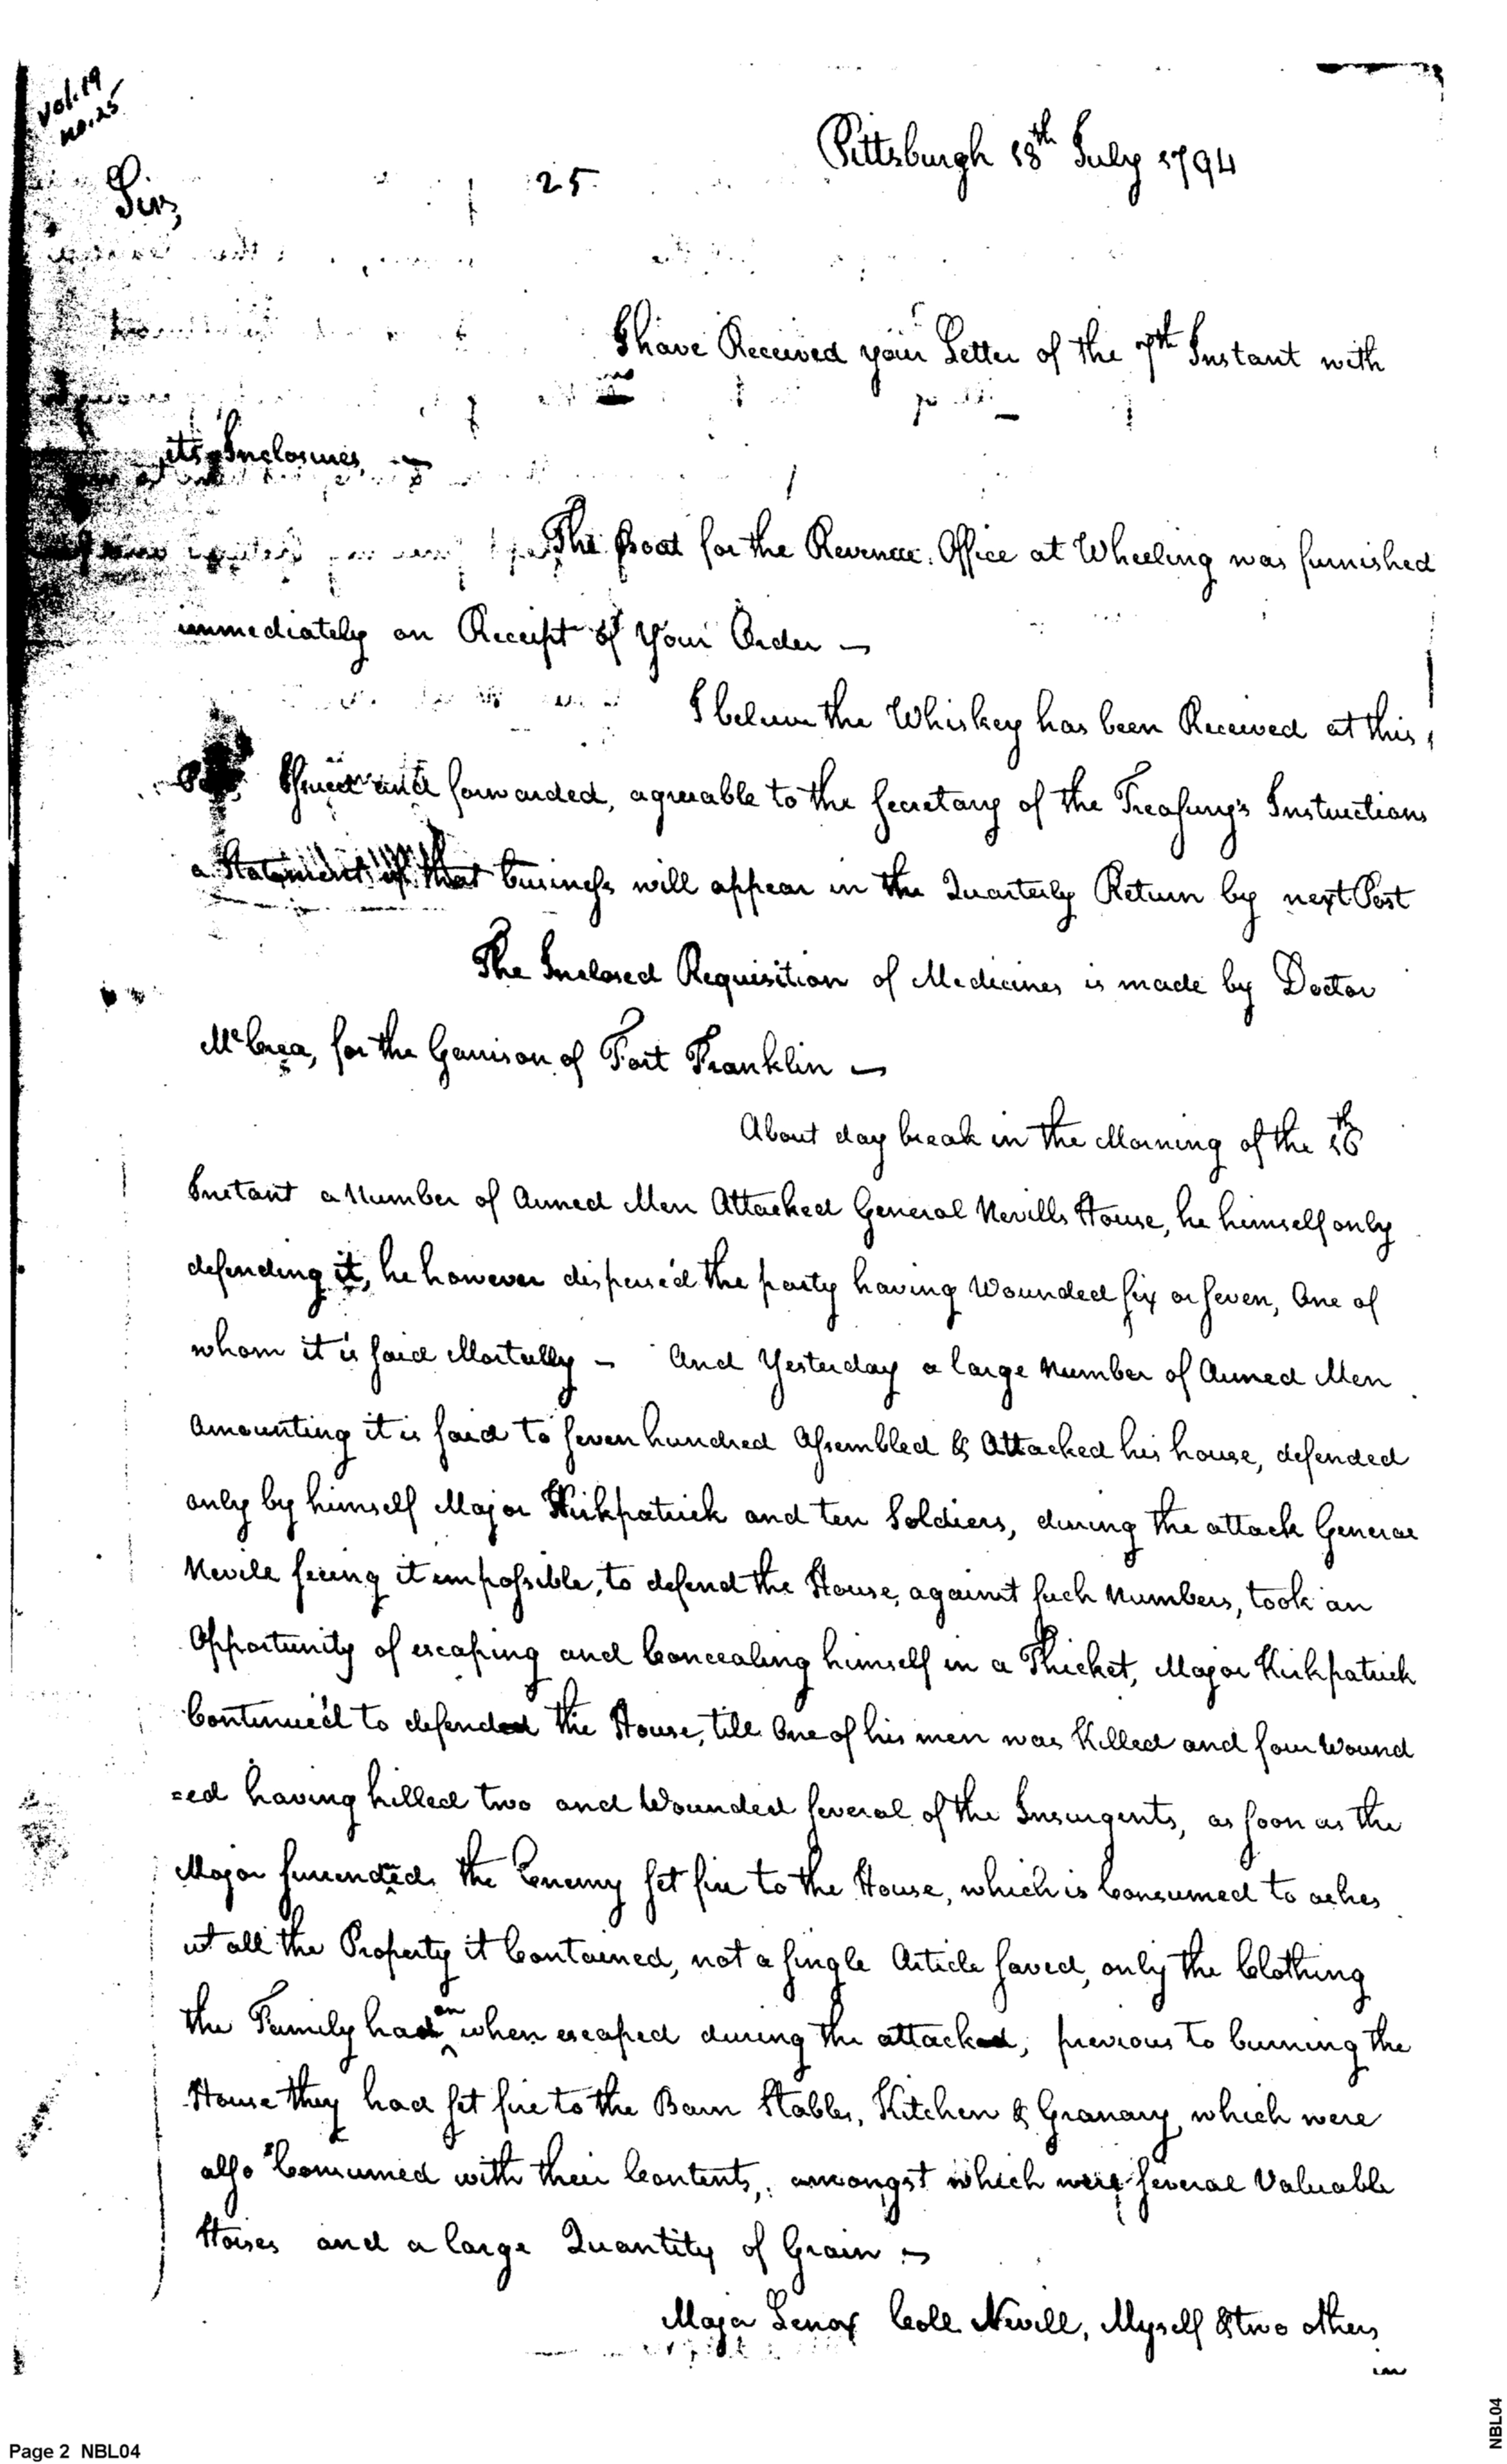 Vol. 19
no. 25
Pittsburgh 18th July 1794
25.
Sir,
I have Received your Letter of the 7th Instant with
its Inclosures, —
The Boat for the Revenue Office at Wheeling was furnished
immediately on Receipt of Your Order —
I believe the Whiskey has been Received at this
and forwarded, agreable to the Secretary of the Treasury's Instructions
a Statement of that business will appear in the Quarterly Return by next Post
The Inclosed Requisition of Medicines is made by Doctor
McCrea, for the Garrison of Fort Franklin —
About day break in the Morning of the 16th
Instant a Number of Armed Men Attacked General Nevills House, he himself only
defending it, he however dispersed the party having Wounded six or seven, One of
whom it is said Mortally — And Yesterday a large Number of Armed Men
Amounting it is said to seven hundred Assembled & Attacked his house, defended
only by himself Major Kirkpatrick and ten Soldiers, during the attack General
Nevile seeing it impossible, to defend the House, against such Numbers, took an
Opportunity of escaping and Concealing himself in a Thicket, Major Kirkpatrick
Continue'd to defended the House, till One of his men was Killed and four Wound
=ed having killed two and Wounded several of the Insurgents, as soon as the
Major surrended, the Enemy set fire to the House, which is Consumed to ashes
all the Property it Contained, not a single Article saved, only the Clothing
the Family had on when escaped during the attacked, previous to burning the
House they had set fire to the Barn Stables, Kitchen & Granary which were
also Consumed with their Contents, amongst which were several Valuable
Horses and a large Quantity of Grain —
Major Lenox Coll. Nevill, Myself & two others
in
Page 2 NBL04
NBL04